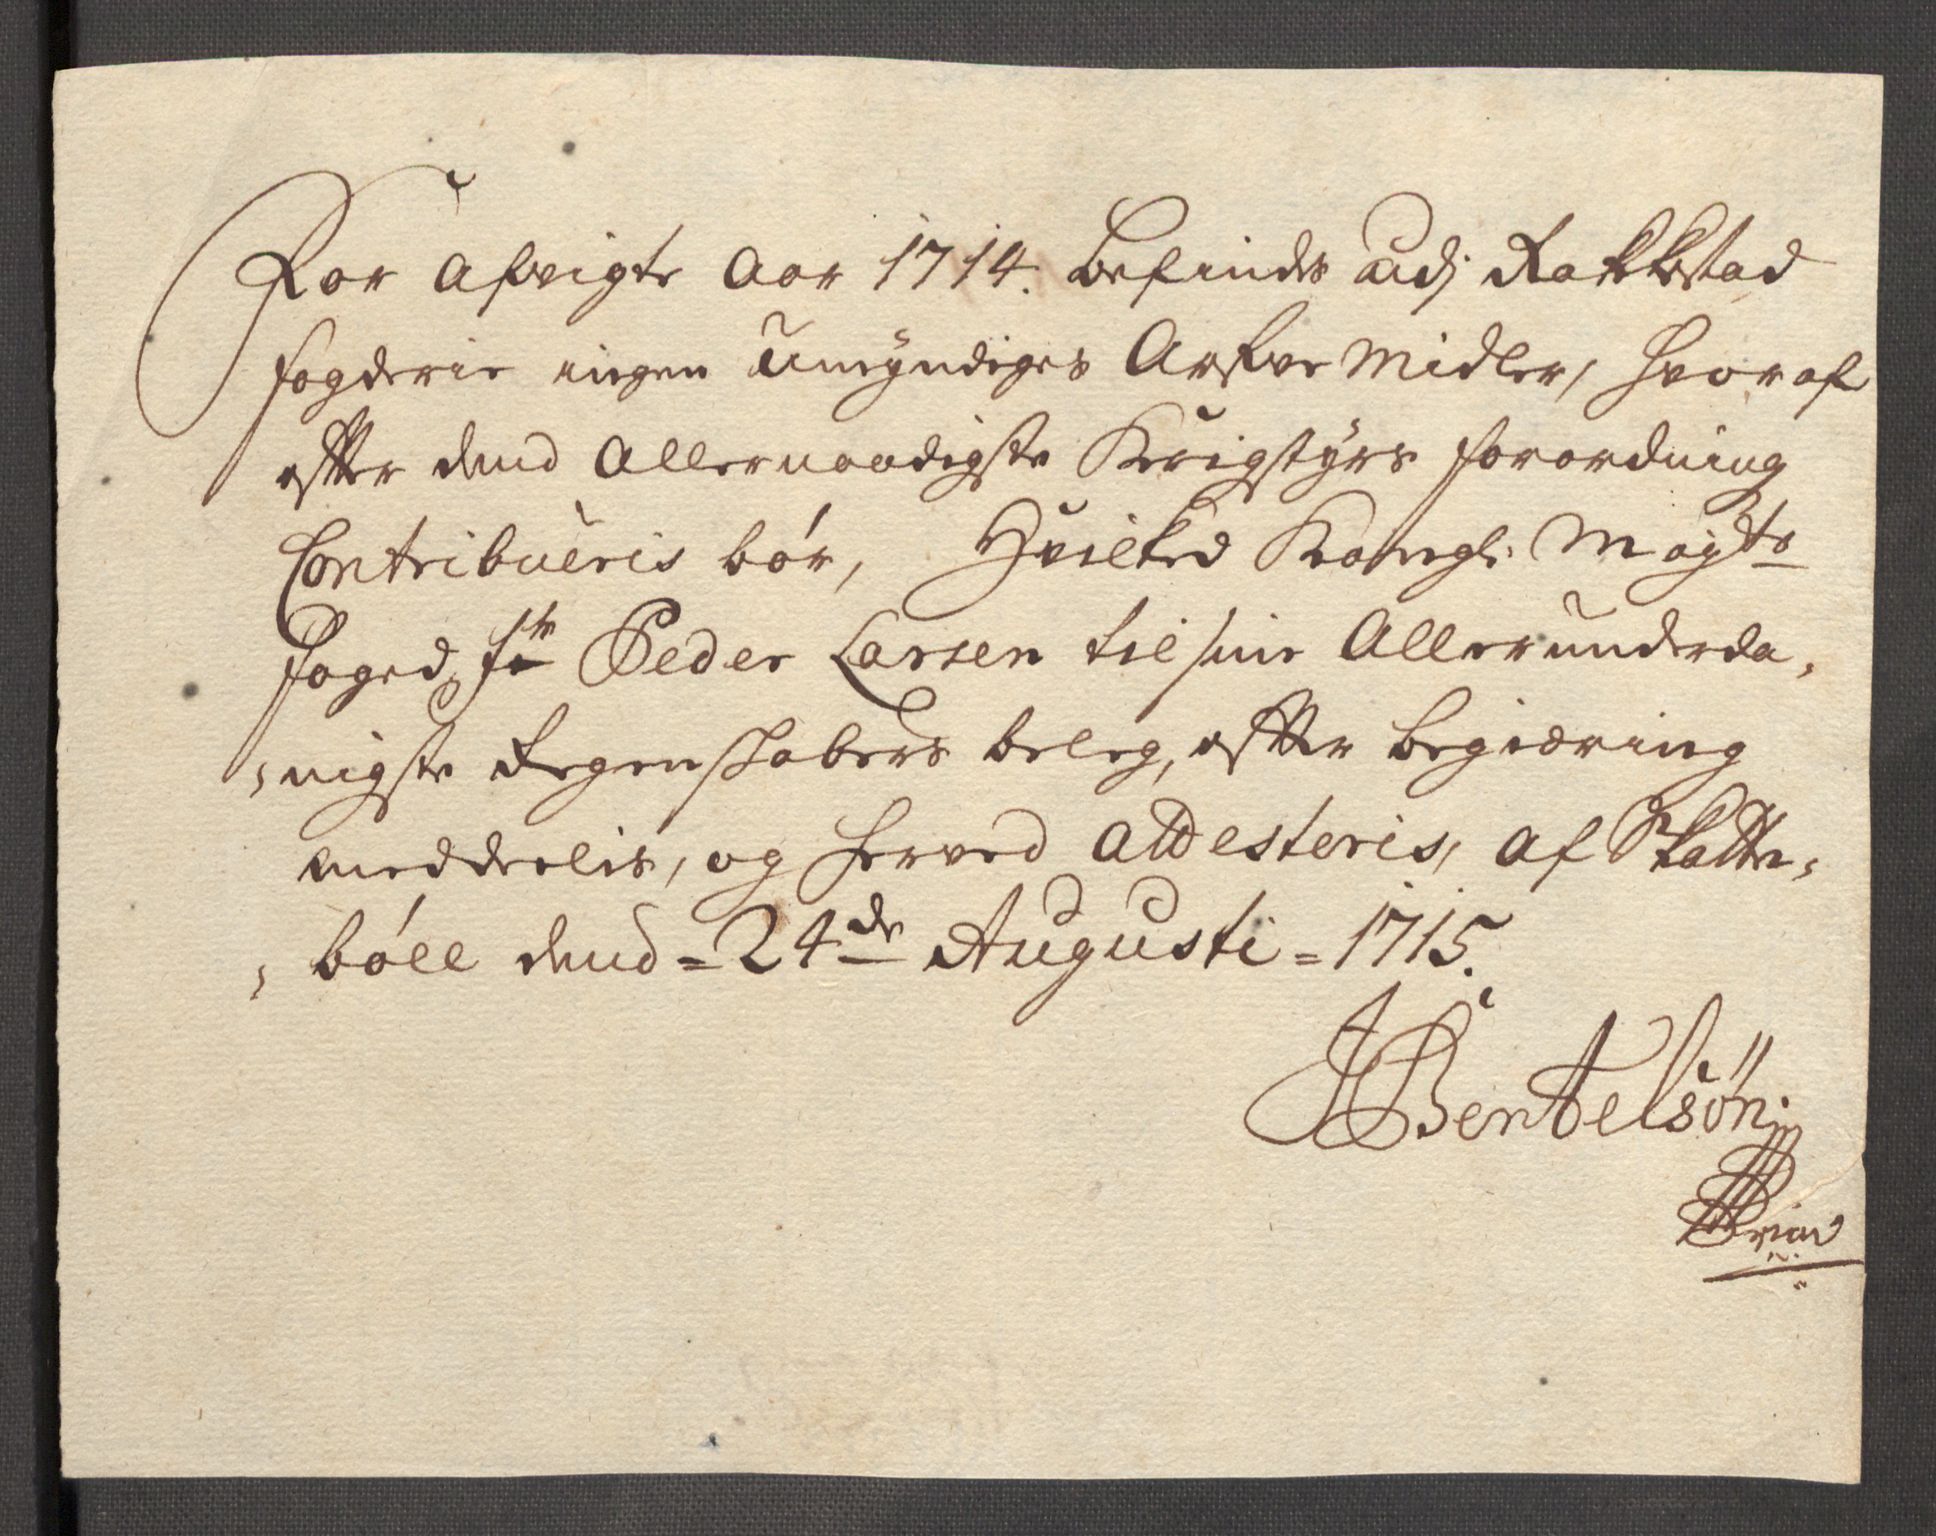 For afvigte Aar 1714. befindes udj Rakkestad
fogderie ingen umÿndiges Arfve Midler, hvoraf
effter dend Allernaadigste Krigstÿrs forordning
Contribueris bór, Hvilked Kongl: Maÿts
foged Sr Peder Larsen til sine Allerunderda,
,nigste Regenskabers beleg, effter begiæring
meddeelis, og herved Attesteris, Af Skatte,
,bóll dend = 24de Augusti = 1715.
JBentelsøn